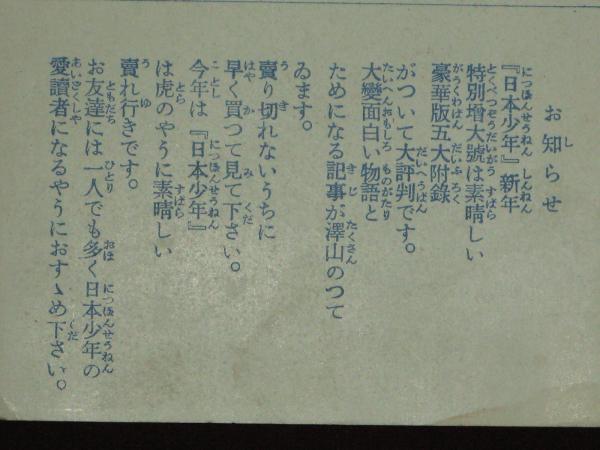 お知らせ
『日本少年』新年
特別增大號は素晴しい
豪華版五大附錄
がついて大評判です。
大變面白い物語と
ためになる記事が澤山のつて
ゐます。
賣り切れないうちに
早く買つて見て下さい。
今年は『日本少年』
は虎のやうに素晴しい
賣れ行きです。
お友達には一人でも多く日本少年の
愛讀者になるやうにおすゝめ下さい。